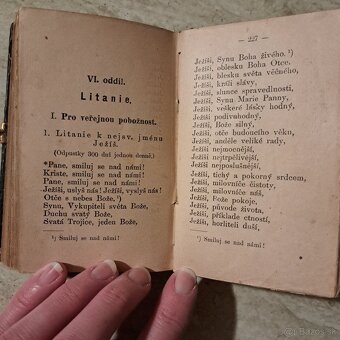 VI. oddíl.
Litanie.
I. Pro veřejnou pobožnost.
1. Litanie k nejsv. jménu
Ježíš.
(Odpustky 300 dní jednou denně.)
*Pane, smiluj se nad námi!
Kriste, smiluj se nad námi!
Pane, smiluj se nad námi!
Ježíši, uslyš nás! Ježíši, vyslyš nás!
Otče s nebes Bože,¹)
Synu, Vykupiteli světa Bože,
Duchu svatý Bože,
Svatá Trojice, jeden Bože,
¹) Smiluj se nad námi!
— 227 —
Ježíši, Synu Boha živého,¹)
Ježíši, oblesku Boha Otce,
Ježíši, blesku světa věčného,
Ježíši, králi slávy,
Ježíši, slunce spravedlnosti,
Ježíši, Synu Marie Panny,
Ježíši, veškeré lásky hodný,
Ježíši, podivuhodný,
Ježíši, Bože silný,
Ježíši, otče budoucího věku,
Ježíši, anděle veliké rady,
Ježíši, nejmocnější,
Ježíši, nejtrpělivější,
Ježíši, nejposlušnější,
Ježíši, tichý a pokorný srdcem,
Ježíši, milovníče čistoty,
Ježíši, milovníče náš,
Ježíši, Bože pokoje,
Ježíši, původe života,
Ježíši, příklade ctností,
Ježíši, horliteli duší,
¹) Smiluj se nad námi!
© Bazos.sk